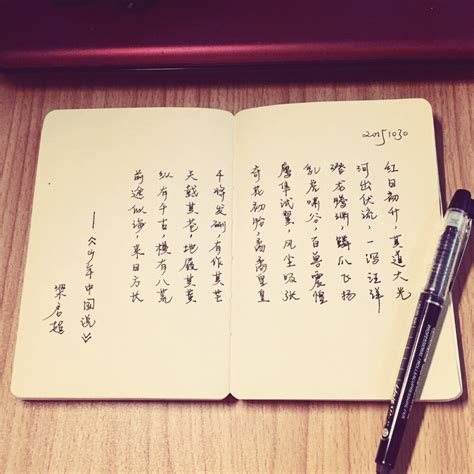 20151030
红日初升，其道大光
河出伏流，一泻汪洋
潜龙腾渊，鳞爪飞扬
乳虎啸谷，百兽震惶
鹰隼试翼，风尘吸张
奇花初胎，矞矞皇皇
干将发硎，有作其芒
天戴其苍，地履其黄
纵有千古，横有八荒
前途似海，来日方长
——《少年中国说》
梁启超